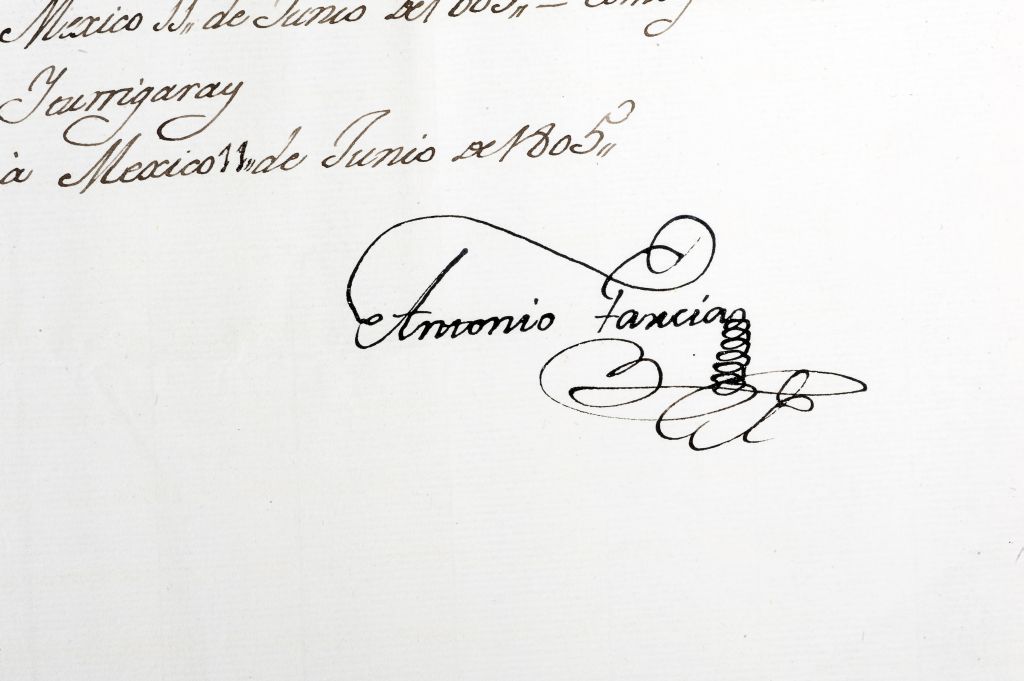 Mexico 11,, de Junio de 1805,, =
Iturrigaray
à Mexico 11,, de Junio de 1805,,
Antonio